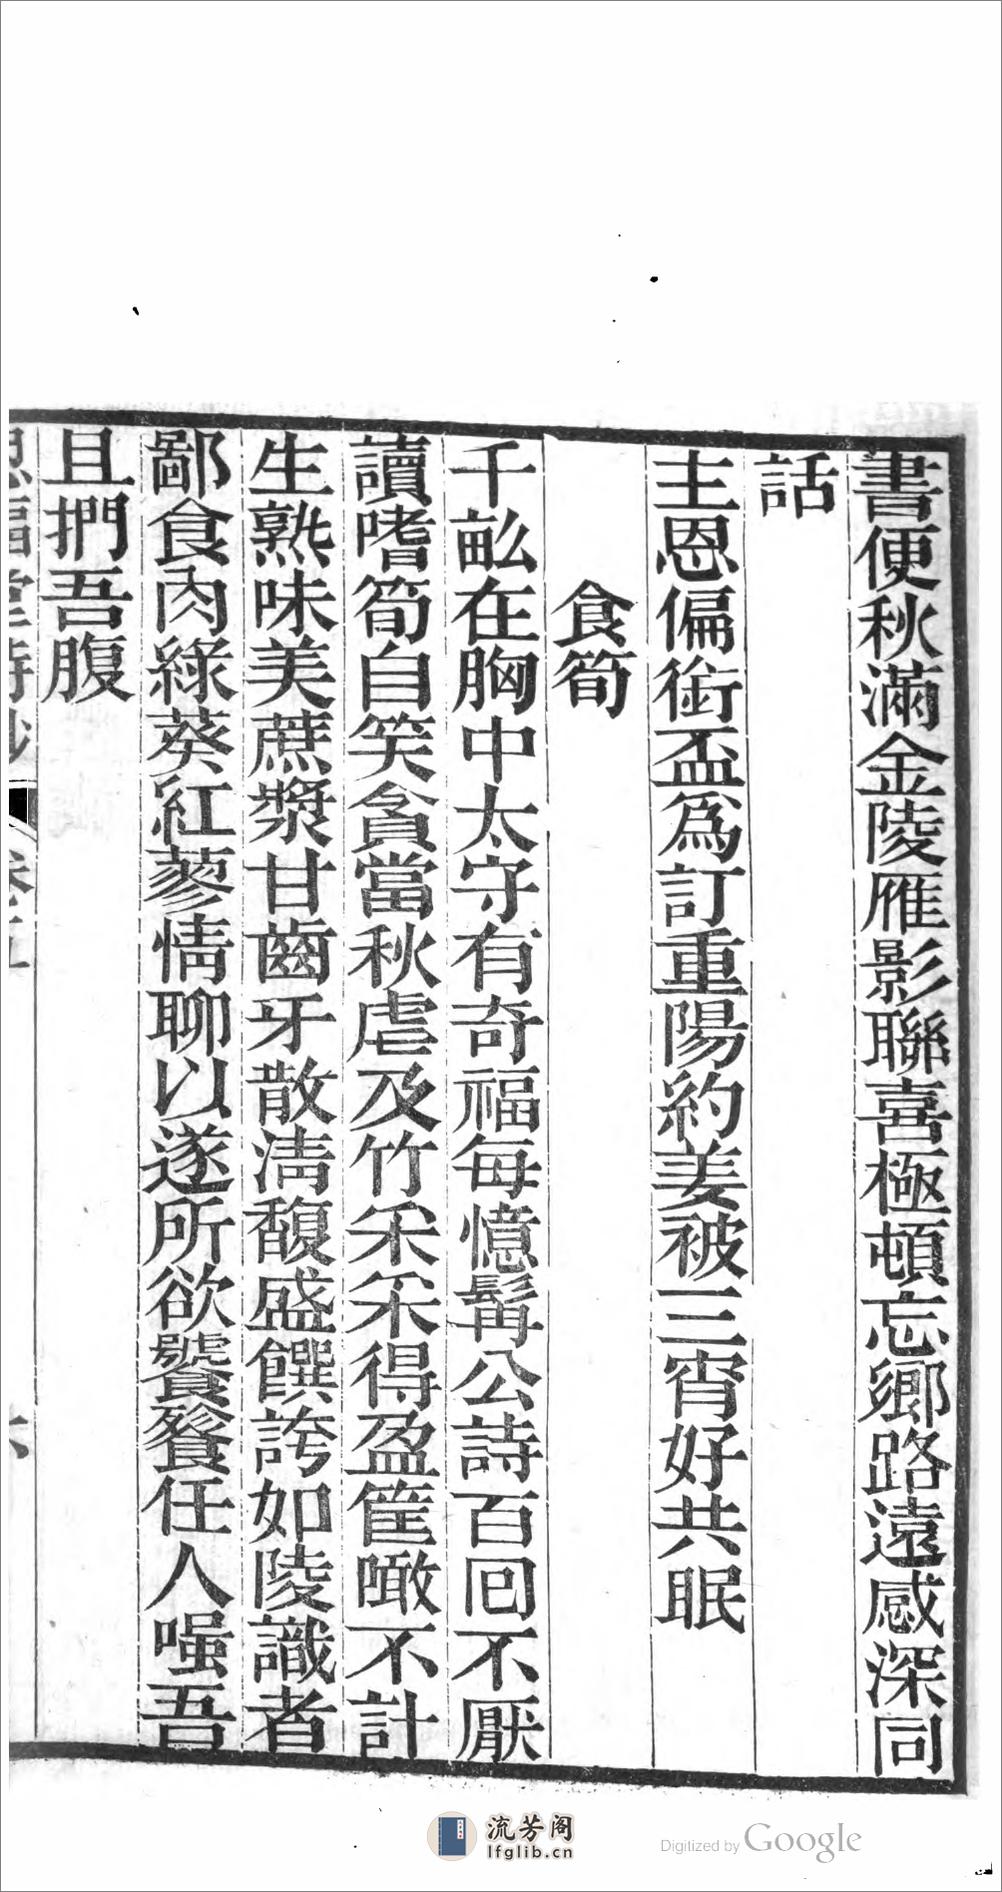 書便秋滿金陵雁影聯喜極頓忘鄉路遠感深同
話
主恩偏銜盃爲訂重陽約姜被三宵好共眠
食筍
千畝在胸中太守有奇福每憶髯公詩百回不厭
讀嗜筍自笑貪當秋虐及竹釆釆得盈筐噉不計
生熟味美蔗漿甘齒牙散清馥盛饌誇如陵識者
鄙食肉綠葵紅蓼情聊以遂所欲饕餮任人嗤吾
且捫吾腹
卷五
六
流芳阁
lfglib.cn
Digitized by Google